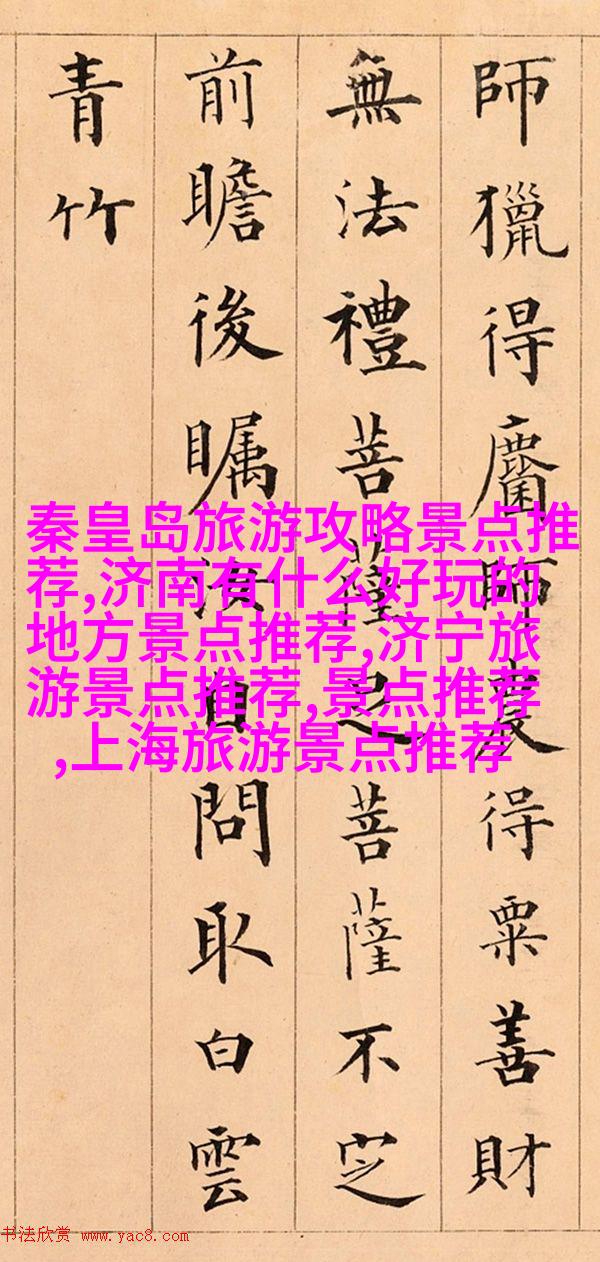 師獵得麕師農得粟善財
無法禮菩薩足菩薩不定
前瞻後矚汝自問取白雲
青竹
秦皇岛旅游攻略景点推
荐,济南有什么好玩的
地方景点推荐,济宁旅
游景点推荐,景点推荐
,上海旅游景点推荐
书法欣赏 www.yac8.com